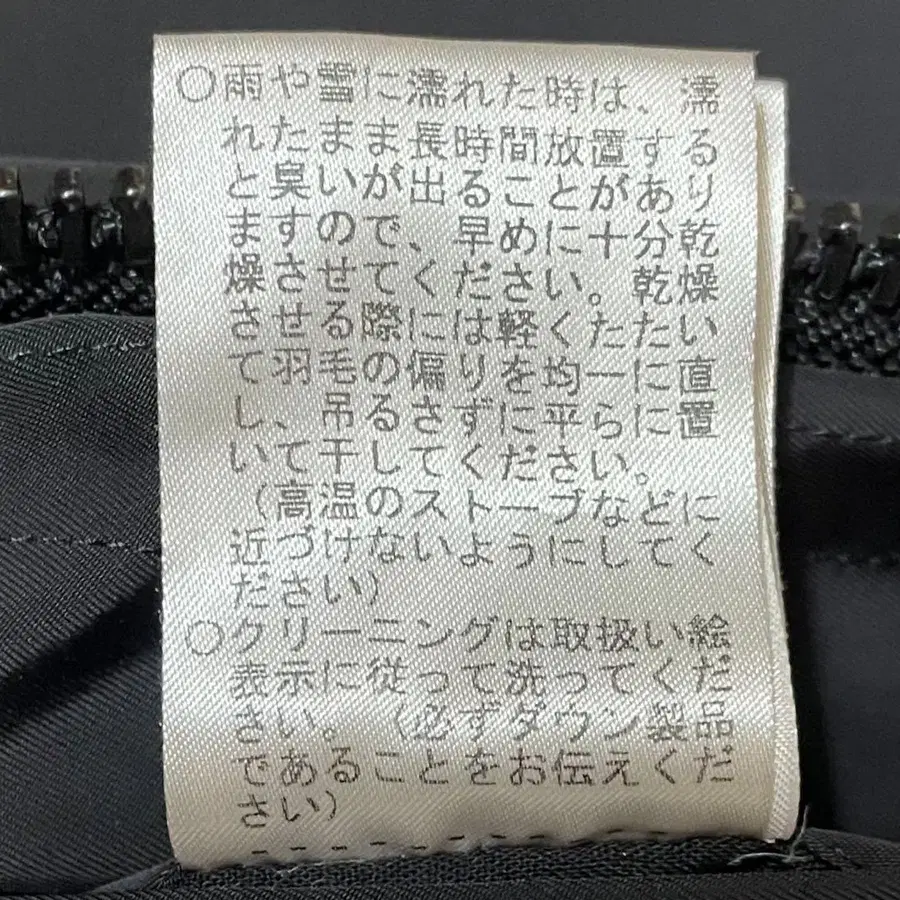 ○雨や雪に濡れた時は、濡
れたまま長時間放置する
と臭いが出ることがあり
ますので、早めに十分乾
燥させてください。乾燥
させる際には軽くたたい
て羽毛の偏りを均一に直
し、吊るさずに平らに置
いて干してください。
(高温のストーブなどに
近づけないようにしてく
ださい)
○クリーニングは取扱い絵
表示に従って洗ってくだ
さい。(必ずダウン製品
であることをお伝えくだ
さい)